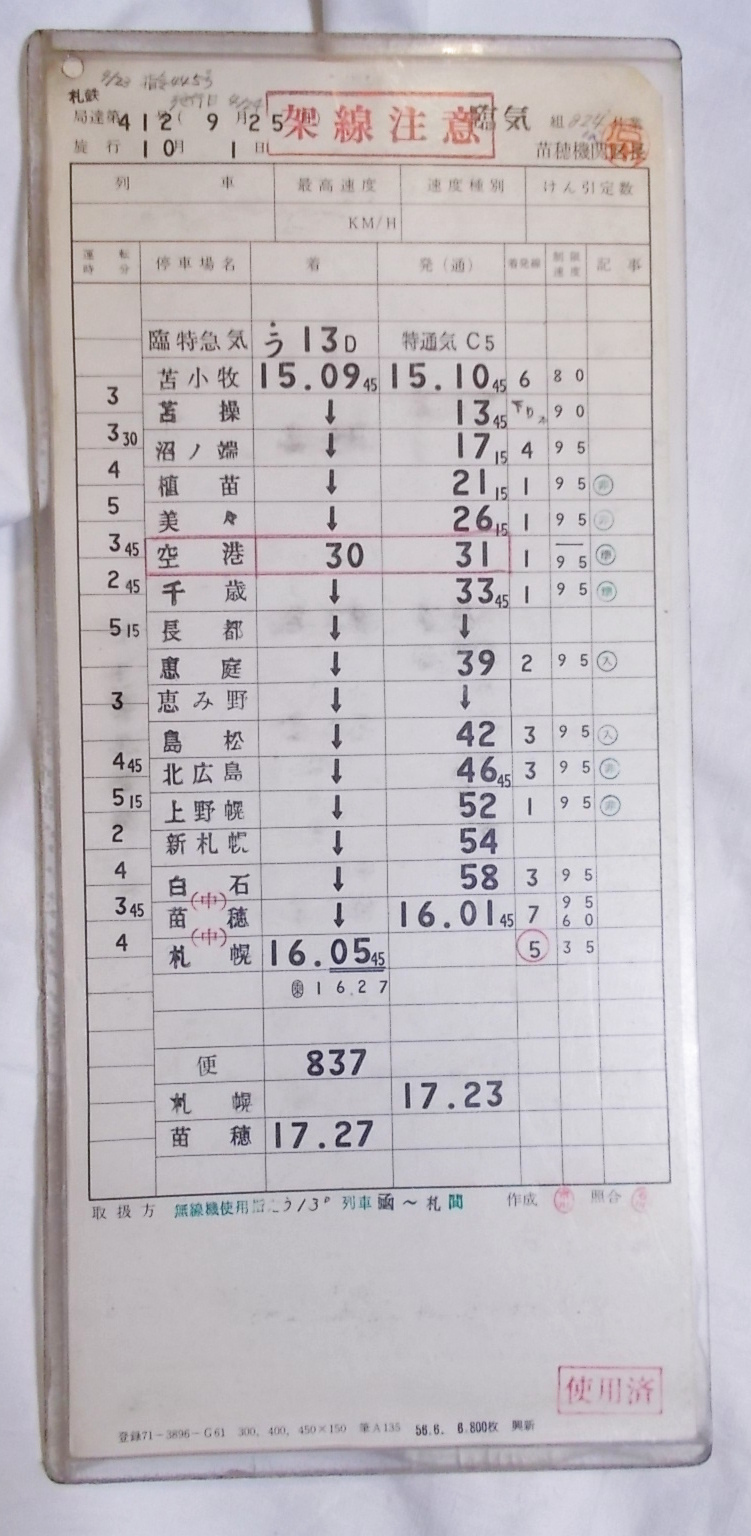 札鉄
局達第412号(9月25日)
架線注意
臨気
施行 10月 1日
苗穂機関区長
列車 最高速度 速度種別 けん引定数
KM/H
運転時分 停車場名 着 発(通) 着発線 制限速度 記事
臨特急気 う13D 特通気C5
苫小牧 15.09 45 15.10 45 6 80
3
苫操 ↓ 13 45 下り本 90
3 30
沼ノ端 ↓ 17 15 4 95
4
植苗 ↓ 21 15 1 95
5
美々 ↓ 26 15 1 95
3 45
空港 30 31 1 95
2 45
千歳 ↓ 33 45 1 95
5 15
長都 ↓ ↓
恵庭 ↓ 39 2 95 入
3
恵み野 ↓ ↓
島松 ↓ 42 3 95 入
4 45
北広島 ↓ 46 45 3 95
5 15
上野幌 ↓ 52 1 95
2
新札幌 ↓ 54
4
白石 ↓ 58 3 95
(中)
3 45
苗穂 ↓ 16.01 45 7 95 60
(中)
4
札幌 16.05 45 5 35
16.27
便 837
札幌 17.23
苗穂 17.27
取扱方 無線機使用 う13D 列車 〜札間 作成 照合
使用済
登録71-3896-G61 300, 400, 450×150 筆A135 56.6. 6.800枚 興新